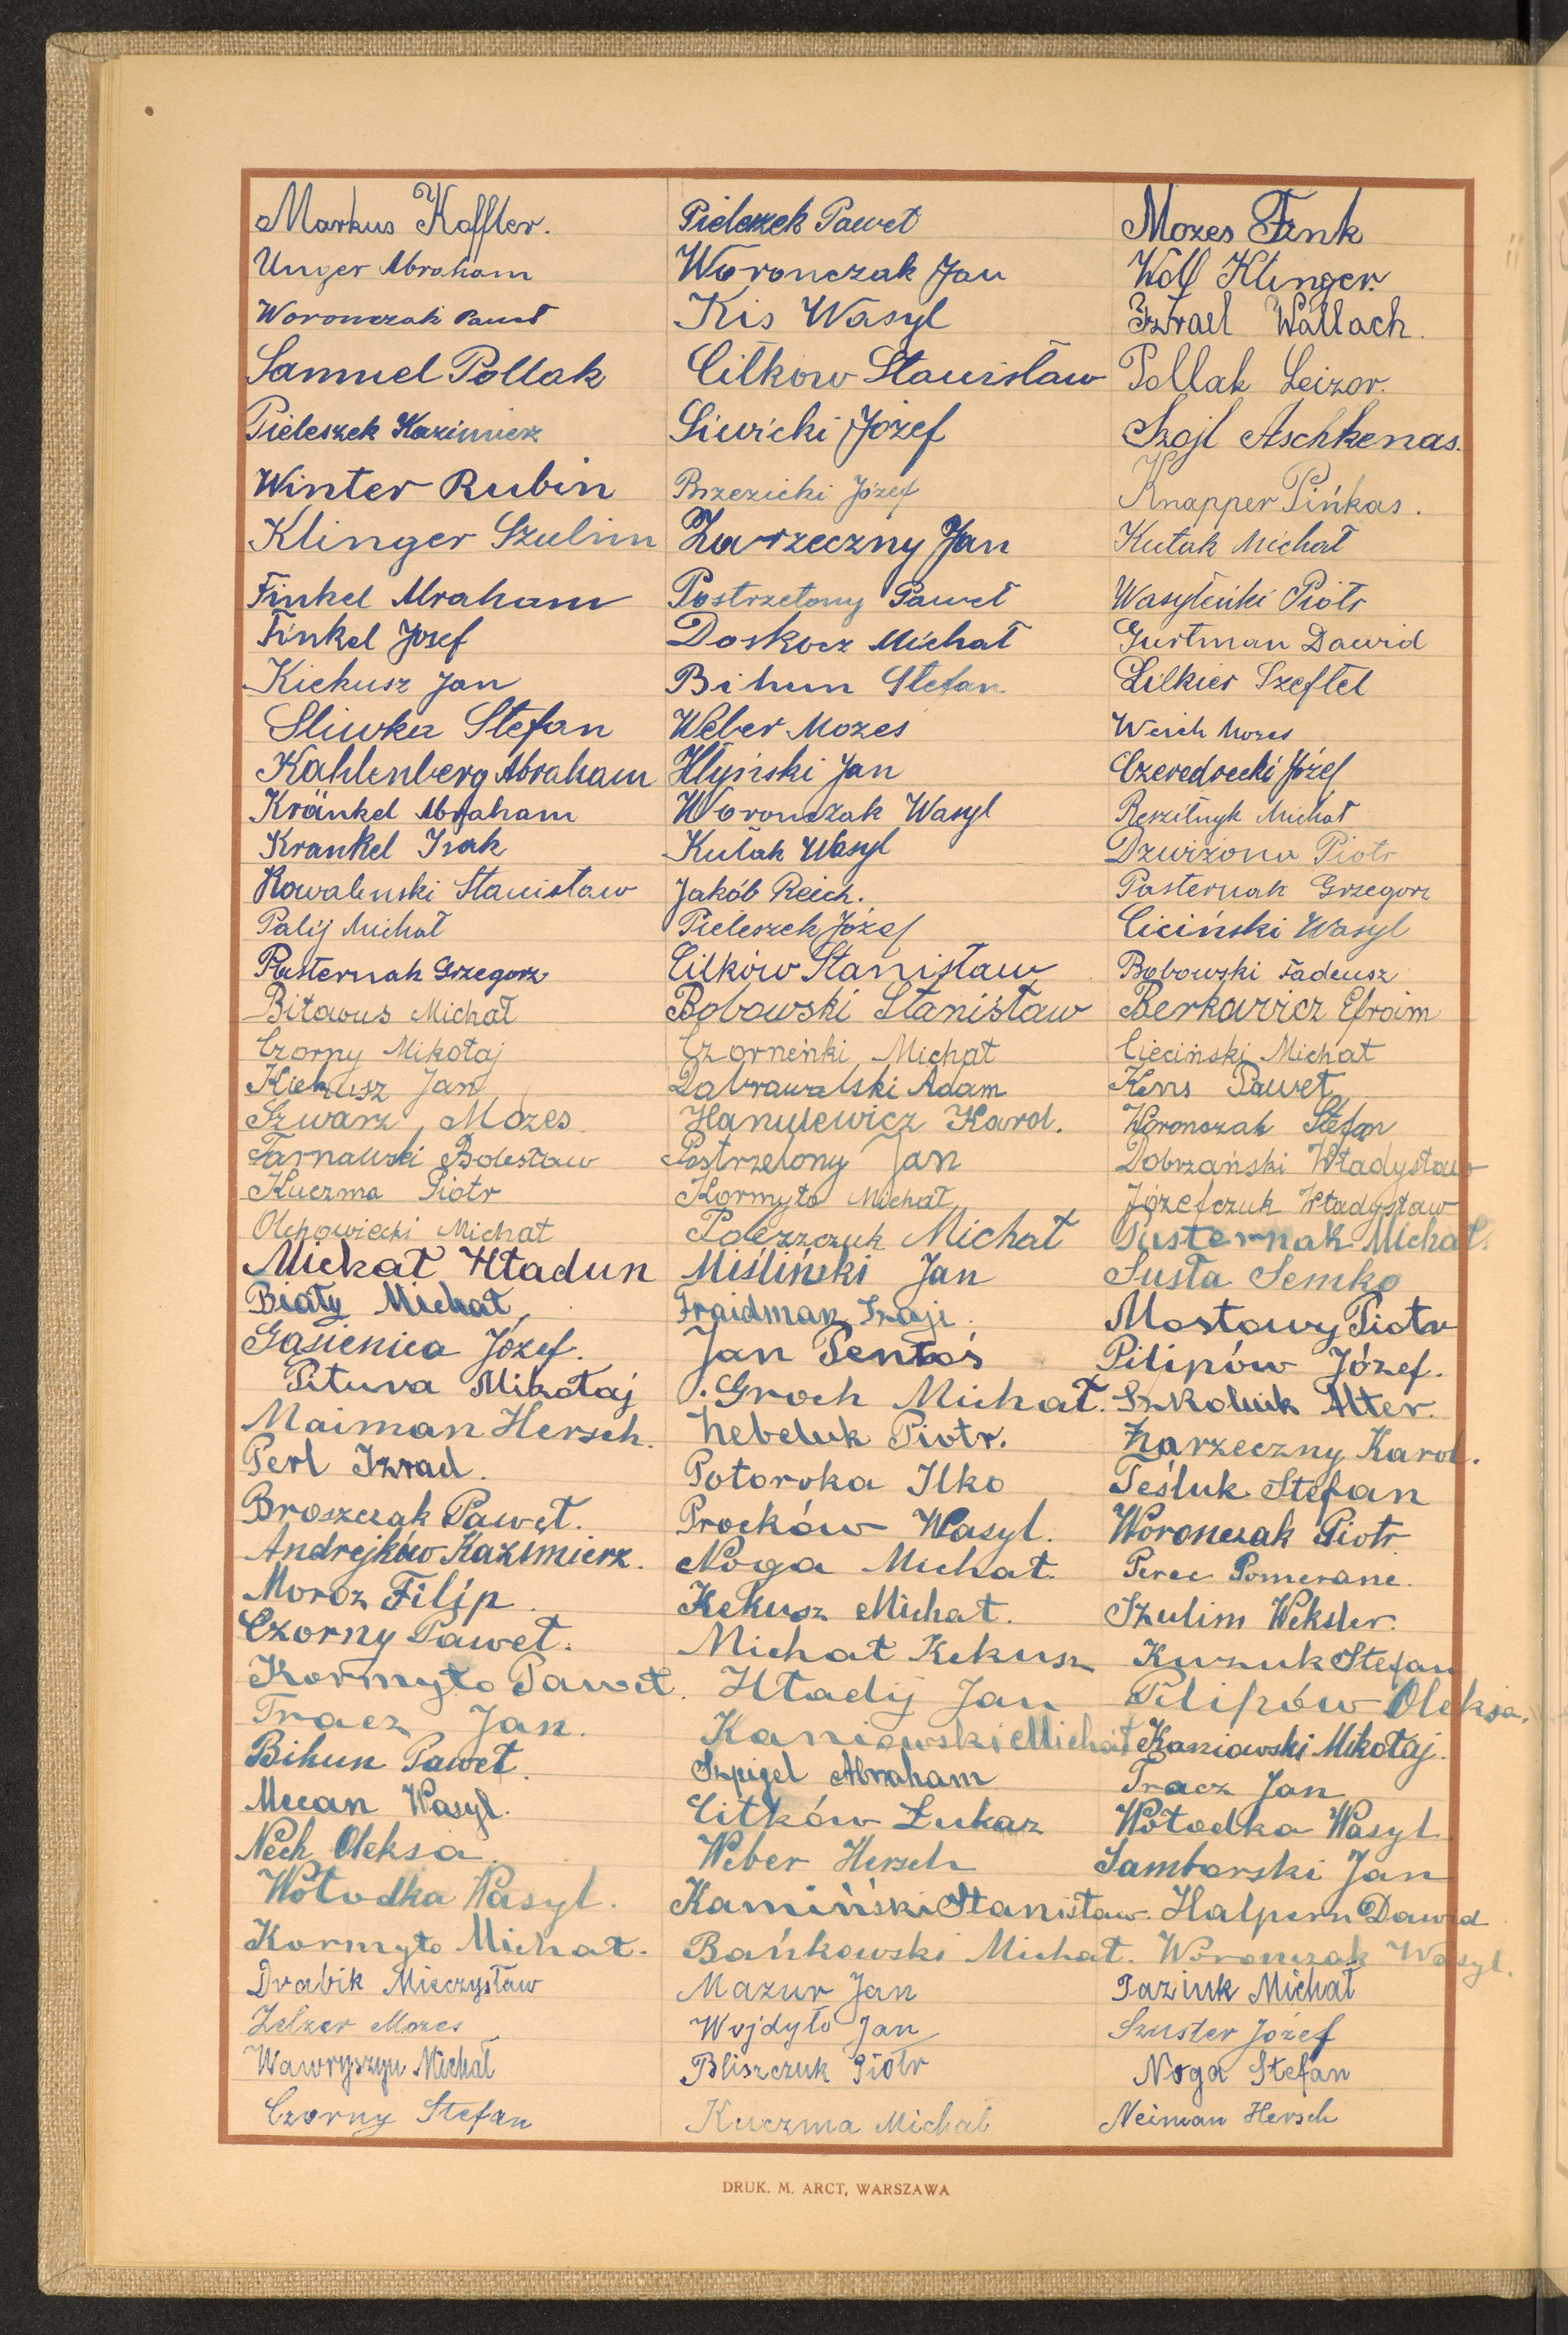 Markus Koffler.
Unger Abraham
Woronczak Paweł
Samuel Pollak
Pieleszek Kazimierz
Winter Rubin
Klinger Szulim
Finkel Abraham
Finkel Josef
Kiekusz Jan
Sliwka Stefan
Kahlenberg Abraham
Kränkel Abraham
Krankel Isak
Kowalenski Stanisław
Palij Michał
Pasternak Grzegorz
Bitaous Michał
Czorny Mikołaj
Kiekusz Jan
Szwarz Mozes
Tarnawski Bolesław
Kuczma Piotr
Olchowiecki Michał
Michał Hładun
Biały Michał
Gąsienica Józef.
Pitura Mikołaj
Maiman Hersch.
Perl Izrael.
Broszczak Paweł.
Andrejków Kazimierz.
Moroz Filip
Czorny Paweł.
Kormyło Paweł.
Tracz Jan.
Bihun Paweł.
Mecan Wasyl.
Nech Oleksa.
Wołodka Wasyl.
Kormyło Michał.
Drabik Mieczysław
Zelzer Mozes
Wawryszyn Michał
Czorny Stefan
Pieleszek Paweł
Woronczak Jan
Kis Wasyl
Cilkow Stanisław
Siwicki Józef
Brzezicki Józef
Zarzeczny Jan
Postrzelony Paweł
Doskocz Michał
Bihun Stefan
Weber Mozes
Hłyński Jan
Woronczak Wasyl
Kułak Wasyl
Jakób Reich.
Pieleszek Józef
Cilków Stanisław
Bobowski Stanisław
Czorneńki Michał
Dabrawalski Adam
Hanulewicz Karol.
Postrzelony Jan
Kormyło Michał
Poleszczuk Michał
Miśliński Jan
Fraidman Szaji.
Jan Pentoś
Groch Michał.
Nebeluk Piotr.
Potoroka Ilko
Procków Wasyl.
Noga Michał.
Kekusz Michał.
Michał Kekusz
Hładij Jan
Kaniowski Michał
Szpigel Abraham
Citków Łukasz
Weber Hersch
Kamiński Stanisław.
Bańkowski Michał.
Mazur Jan
Wojdyło Jan
Bliszczuk Piotr
Kuczma Michał
Mozes Fink
Wolf Klinger.
Izrael Wallach.
Pollak Leizor.
Szojl Aschkenas.
Knapper Pińkas.
Kułak Michał
Wasyleńki Piotr
Gurtman Dawid
Lilkier Szeftel
Weich Mozes
Czeredrecki Józef
Reszitnyk Michał
Dzwizona Piotr
Pasternak Grzegorz
Ciciński Wasyl
Bobowski Tadeusz
Berkowicz Efroim
Cieciński Michał
Kens Paweł
Woronczak Stefan
Dobrzański Władysław
Józefczuk Władysław
Pasternak Michał.
Susta Semko
Mostowy Piotr
Pilipów Józef.
Szkolnik Alter.
Zarzeczny Karol.
Teśluk Stefan
Woronczak Piotr
Perec Pomeranc.
Szulim Weksler.
Kuzuk Stefan
Pilipów Oleksa.
Kaniowski Mikołaj.
Tracz Jan
Wołodka Wasyl
Samborski Jan
Halpern Dawid
Woronczak Wasyl.
Paziuk Michał
Szuster Józef
Noga Stefan
Neiman Hersch
DRUK. M. ARCT, WARSZAWA